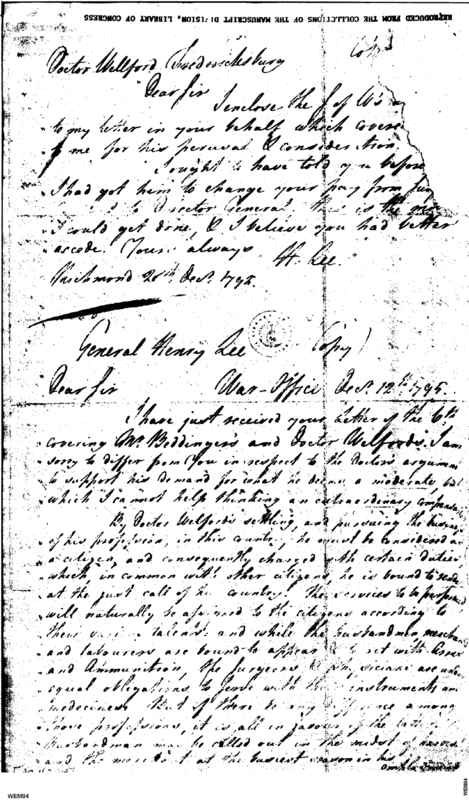 REPRODUCED FROM THE COLLECTIONS OF THE MANUSCRIPT DIVISION, LIBRARY OF CONGRESS
Doctor Wellford Fredericksburg Copy
Dear Sir
I enclose the
to my letter in your behalf which covered
to me for his perusal & consideration.
I ought to have told you before
I had got him to change your pay from
to Director General, this is the
I could get done, & I believe you had better
accede. Yours always
H. Lee
Richmond 20th Decr. 1795.
General Henry Lee Copy
Dear Sir War-Office Decr. 12th 1795.
I have just received your Letter of the 6th
covering Mr. Beddinger's and Doctor Welford's. I am
sorry to differ from you in respect to the Doctors argument
to support his demand for what he deems a moderate but
which I cannot help thinking an extraordinary compensation
By Doctor Welford's settling, and pursuing the business
of his profession, in this country, he must be considered as
a citizen, and consequently charged with certain duties
which, in common with other citizens, he is bound to render
at the just call of his country. The services to be performed
will naturally be assigned to the citizens according to
their various talents: and while the husbandmen, mechanics
and labourers are bound to appear & to act with Arms
and Ammunition, the surgeons & physicians are under
equal obligations to serve with their instruments and
medecines: that if there be any difference among
those professions, it is all in favour of the
Husbandman may be called out in the midst of harvest
and the merchant at the busiest season in his
WEM04
WEM04